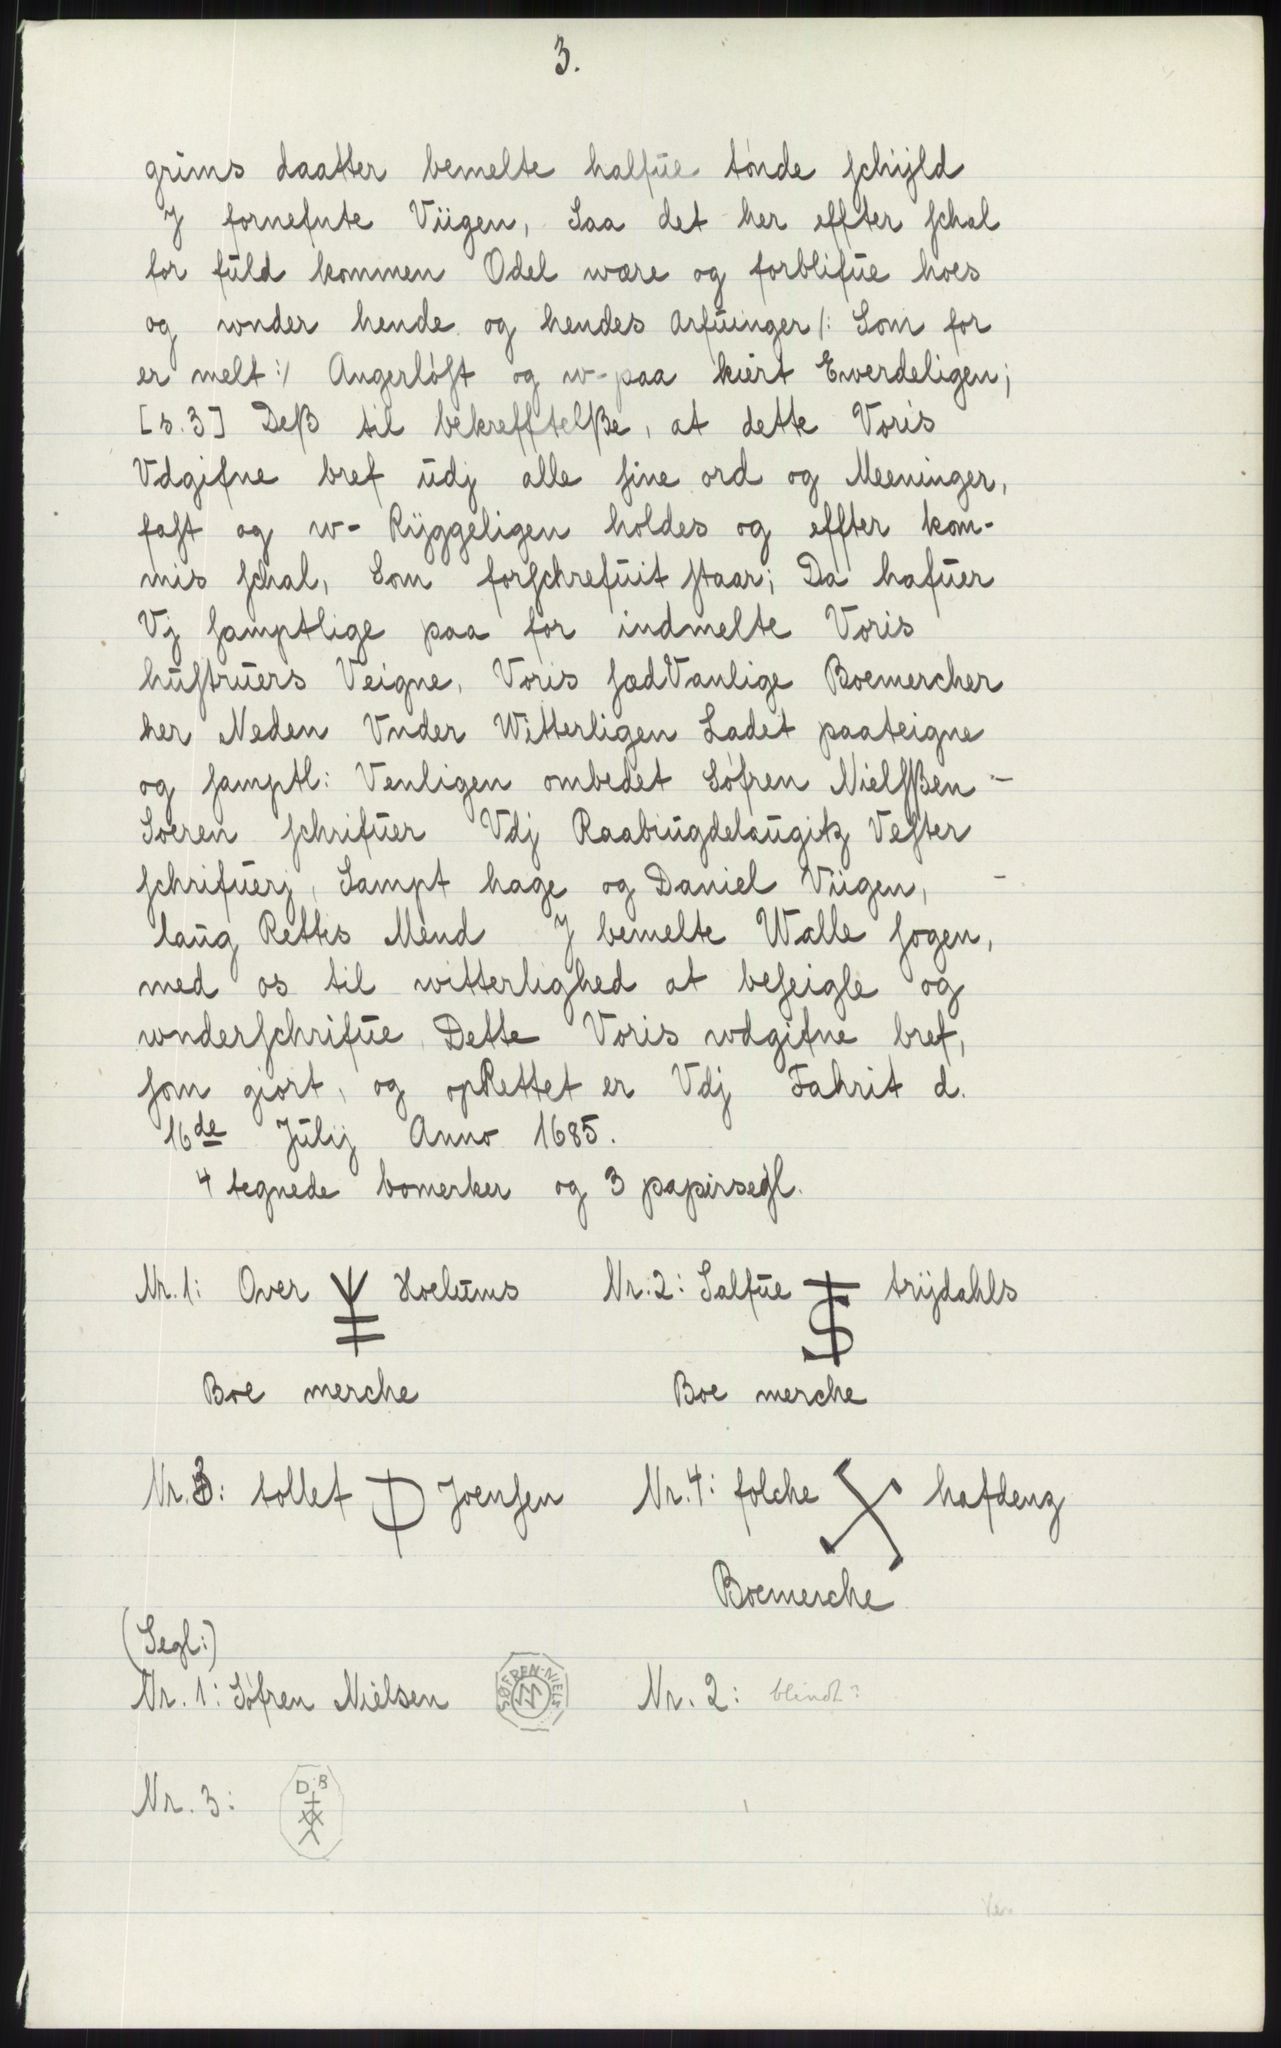 3.
grims daatter bemelte halfue tønde schyld
J fornefnte Viigen, Saa det her effter schal
for fuld kommen Odel wære og forblifue hoes
og wnder hende og hendes Arfuinger /: Som for
er melt :/ Angerløst og w-paa kiert Ewerdeligen;
[s. 3] Deß til bekrefftelße, at dette Voris
Vdgifne bref udj alle sine ord og Meeninger,
fast og w- Ryggeligen holdes og effter kom-
mis schal, Som forschrefuit staar; Da hafuer
Vj samptlige paa for indmelte Voris
hustruers Veigne, Voris sædVanlige Boemercher
her Neden Vnder Witterligen Ladet paateigne
og samptl: Venligen ombedet Søfren Nielsßen –
Soeren schrifuer Vdj Raabiugdelaugitz Vester
schrifuerj, Sampt hage og Daniel Viigen, –
laug Rettis Mend J bemelte Walle sogen,
med os til witterlighed at beseigle og
wnderschrifue Dette Voris wdgifne bref,
som giort, og opRettet er Vdj Fahrit d.
16de Julij Anno 1685.
4 tegnede bomerker og 3 papirsegl.
Nr. 1: Over Hoelums Nr. 2: Salfue trydahls
Boe merche Boe merche
Nr. 3: tollet Joensen Nr. 4: folche hafdenz
Boemerche
(Segl:)
Nr. 1: Søfren Nielsen SØFREN NIELS Nr. 2: blindt?
Nr. 3: D.B